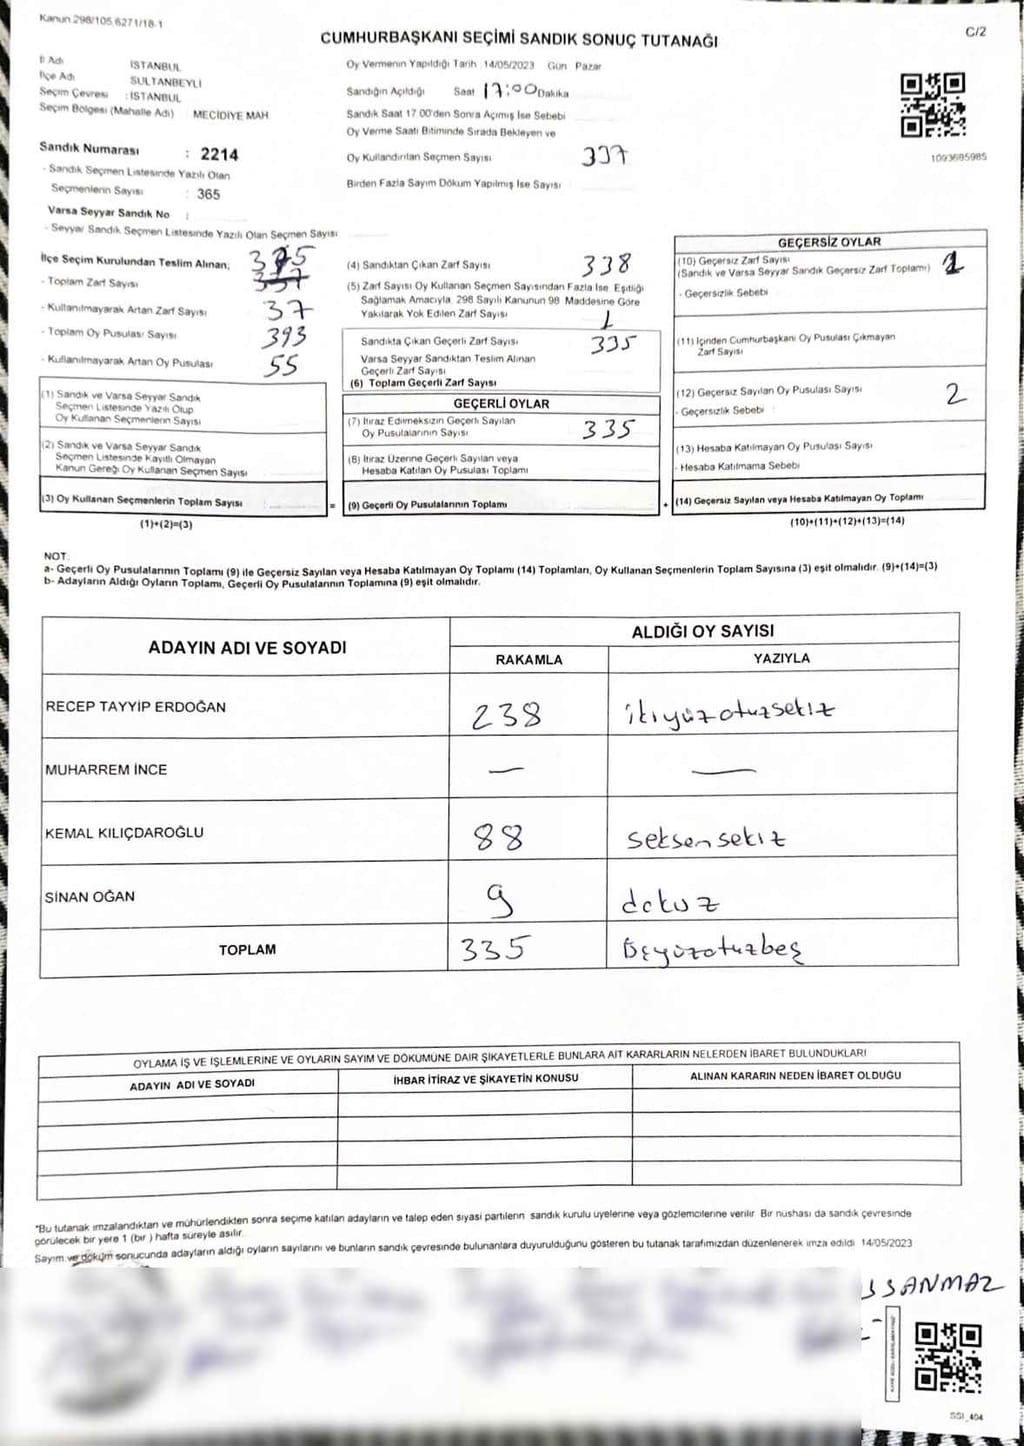 Kanun 298/105,6271/18-1
C/2
CUMHURBAŞKANI SEÇİMİ SANDIK SONUÇ TUTANAĞI
İl Adı İSTANBUL
İlçe Adı SULTANBEYLİ
Seçim Çevresi : İSTANBUL
Seçim Bölgesi (Mahalle Adı) MECİDİYE MAH
Sandık Numarası : 2214
- Sandık Seçmen Listesinde Yazılı Olan
Seçmenlerin Sayısı : 365
Varsa Seyyar Sandık No :
- Seyyar Sandık Seçmen Listesinde Yazılı Olan Seçmen Sayısı
Oy Vermenin Yapıldığı Tarih :14/05/2023 Gün Pazar
Sandığın Açıldığı Saat 17:00 Dakika
Sandık Saat 17.00'den Sonra Açımış İse Sebebi
Oy Verme Saati Bitiminde Sırada Bekleyen ve
Oy Kullandırılan Seçmen Sayısı 337
Birden Fazla Sayım Döküm Yapılmış İse Sayısı
1093685985
İlçe Seçim Kurulundan Teslim Alınan; 375
- Toplam Zarf Sayısı 337
- Kullanılmayarak Artan Zarf Sayısı 37
- Toplam Oy Pusulası Sayısı 393
- Kullanılmayarak Artan Oy Pusulası 55
(1) Sandık ve Varsa Seyyar Sandık
Seçmen Listesinde Yazılı Olup
Oy Kullanan Seçmenlerin Sayısı
(2) Sandık ve Varsa Seyyar Sandık
Seçmen Listesinde Kayıtlı Olmayan
Kanun Gereği Oy Kullanan Seçmen Sayısı
(3) Oy Kullanan Seçmenlerin Toplam Sayısı
=
(1)+(2)=(3)
(4) Sandıktan Çıkan Zarf Sayısı 338
(5) Zarf Sayısı Oy Kullanan Seçmen Sayısından Fazla İse, Eşitliği
Sağlamak Amacıyla, 298 Sayılı Kanunun 98 Maddesine Göre
Yakılarak Yok Edilen Zarf Sayısı 1
Sandıkta Çıkan Geçerli Zarf Sayısı 335
Varsa Seyyar Sandıktan Teslim Alınan
Geçerli Zarf Sayısı
(6) Toplam Geçerli Zarf Sayısı
GEÇERLİ OYLAR
(7) İtiraz Edilmeksizin Geçerli Sayılan
Oy Pusulalarının Sayısı 335
(8) İtiraz Üzerine Geçerli Sayılan veya
Hesaba Katılan Oy Pusulası Toplamı
(9) Geçerli Oy Pusulalarının Toplamı
+
GEÇERSİZ OYLAR
(10) Geçersiz Zarf Sayısı
(Sandık ve Varsa Seyyar Sandık Geçersiz Zarf Toplamı)
- Geçersizlik Sebebi
(11) İçinden Cumhurbaşkanı Oy Pusulası Çıkmayan
Zarf Sayısı
(12) Geçersiz Sayılan Oy Pusulası Sayısı 2
- Geçersizlik Sebebi
(13) Hesaba Katılmayan Oy Pusulası Sayısı
- Hesaba Katılmama Sebebi
(14) Geçersiz Sayılan veya Hesaba Katılmayan Oy Toplamı
(10)+(11)+(12)+(13)=(14)
NOT:
a- Geçerli Oy Pusulalarının Toplamı (9) ile Geçersiz Sayılan veya Hesaba Katılmayan Oy Toplamı (14) Toplamları, Oy Kullanan Seçmenlerin Toplam Sayısına (3) eşit olmalıdır. (9)+(14)=(3)
b- Adayların Aldığı Oyların Toplamı, Geçerli Oy Pusulalarının Toplamına (9) eşit olmalıdır.
ADAYIN ADI VE SOYADI
ALDIĞI OY SAYISI
RAKAMLA YAZIYLA
RECEP TAYYİP ERDOĞAN 238 ikiyüzotuzsekiz
MUHARREM İNCE — —
KEMAL KILIÇDAROĞLU 88 seksen sekiz
SİNAN OĞAN 9 dokuz
TOPLAM 335 Üçyüzotuzbeş
OYLAMA İŞ VE İŞLEMLERİNE VE OYLARIN SAYIM VE DÖKÜMÜNE DAİR ŞİKAYETLERLE BUNLARA AİT KARARLARIN NELERDEN İBARET BULUNDUKLARI
ADAYIN ADI VE SOYADI İHBAR İTİRAZ VE ŞİKAYETİN KONUSU ALINAN KARARIN NEDEN İBARET OLDUĞU
*Bu tutanak imzalandıktan ve mühürlendikten sonra seçime katılan adayların ve talep eden siyasi partilerin sandık kurulu üyelerine veya gözlemcilerine verilir. Bir nüshası da sandık çevresinde
görülecek bir yere 1 (bir) hafta süreyle asılır.
Sayım ve döküm sonucunda adayların aldığı oyların sayılarını ve bunların sandık çevresinde bulunanlara duyurulduğunu gösteren bu tutanak tarafımızdan düzenlenerek imza edildi. 14/05/2023
SSI_404